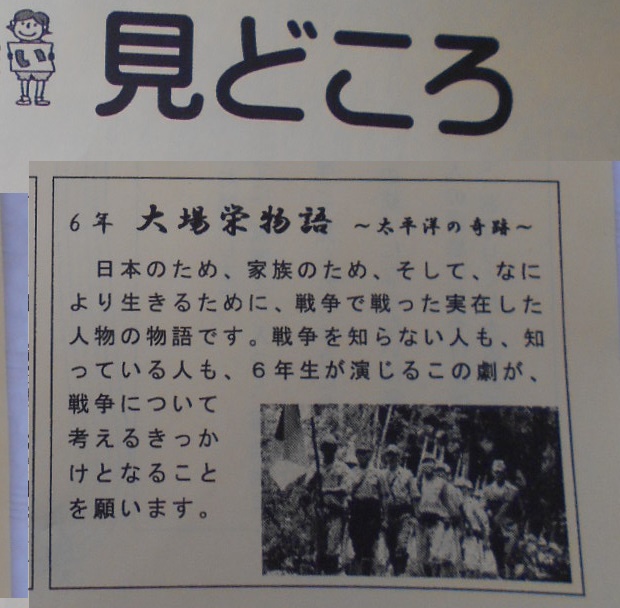 い
見どころ
6年 大場栄物語 ～太平洋の奇跡～
日本のため、家族のため、そして、なに
より生きるために、戦争で戦った実在した
人物の物語です。戦争を知らない人も、知
っている人も、６年生が演じるこの劇が、
戦争について
考えるきっか
けとなること
を願います。